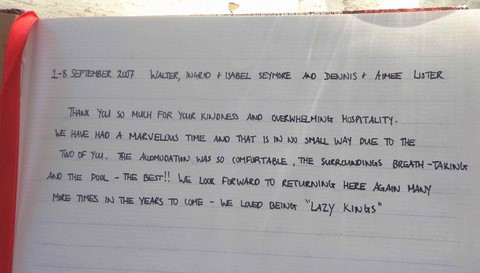 1-8 SEPTEMBER 2007 WALTER, INGRID + ISABEL SEYMORE AND DENNIS + AIMEE LISTER
THANK YOU SO MUCH FOR YOUR KINDNESS AND OVERWHELMING HOSPITALITY.
WE HAVE HAD A MARVELOUS TIME AND THAT IS IN NO SMALL WAY DUE TO THE
TWO OF YOU. THE ACOMODATION WAS SO COMFORTABLE, THE SURROUNDINGS BREATH-TAKING
AND THE POOL - THE BEST!! WE LOOK FORWARD TO RETURNING HERE AGAIN MANY
MORE TIMES IN THE YEARS TO COME - WE LOVED BEING "LAZY KINGS"